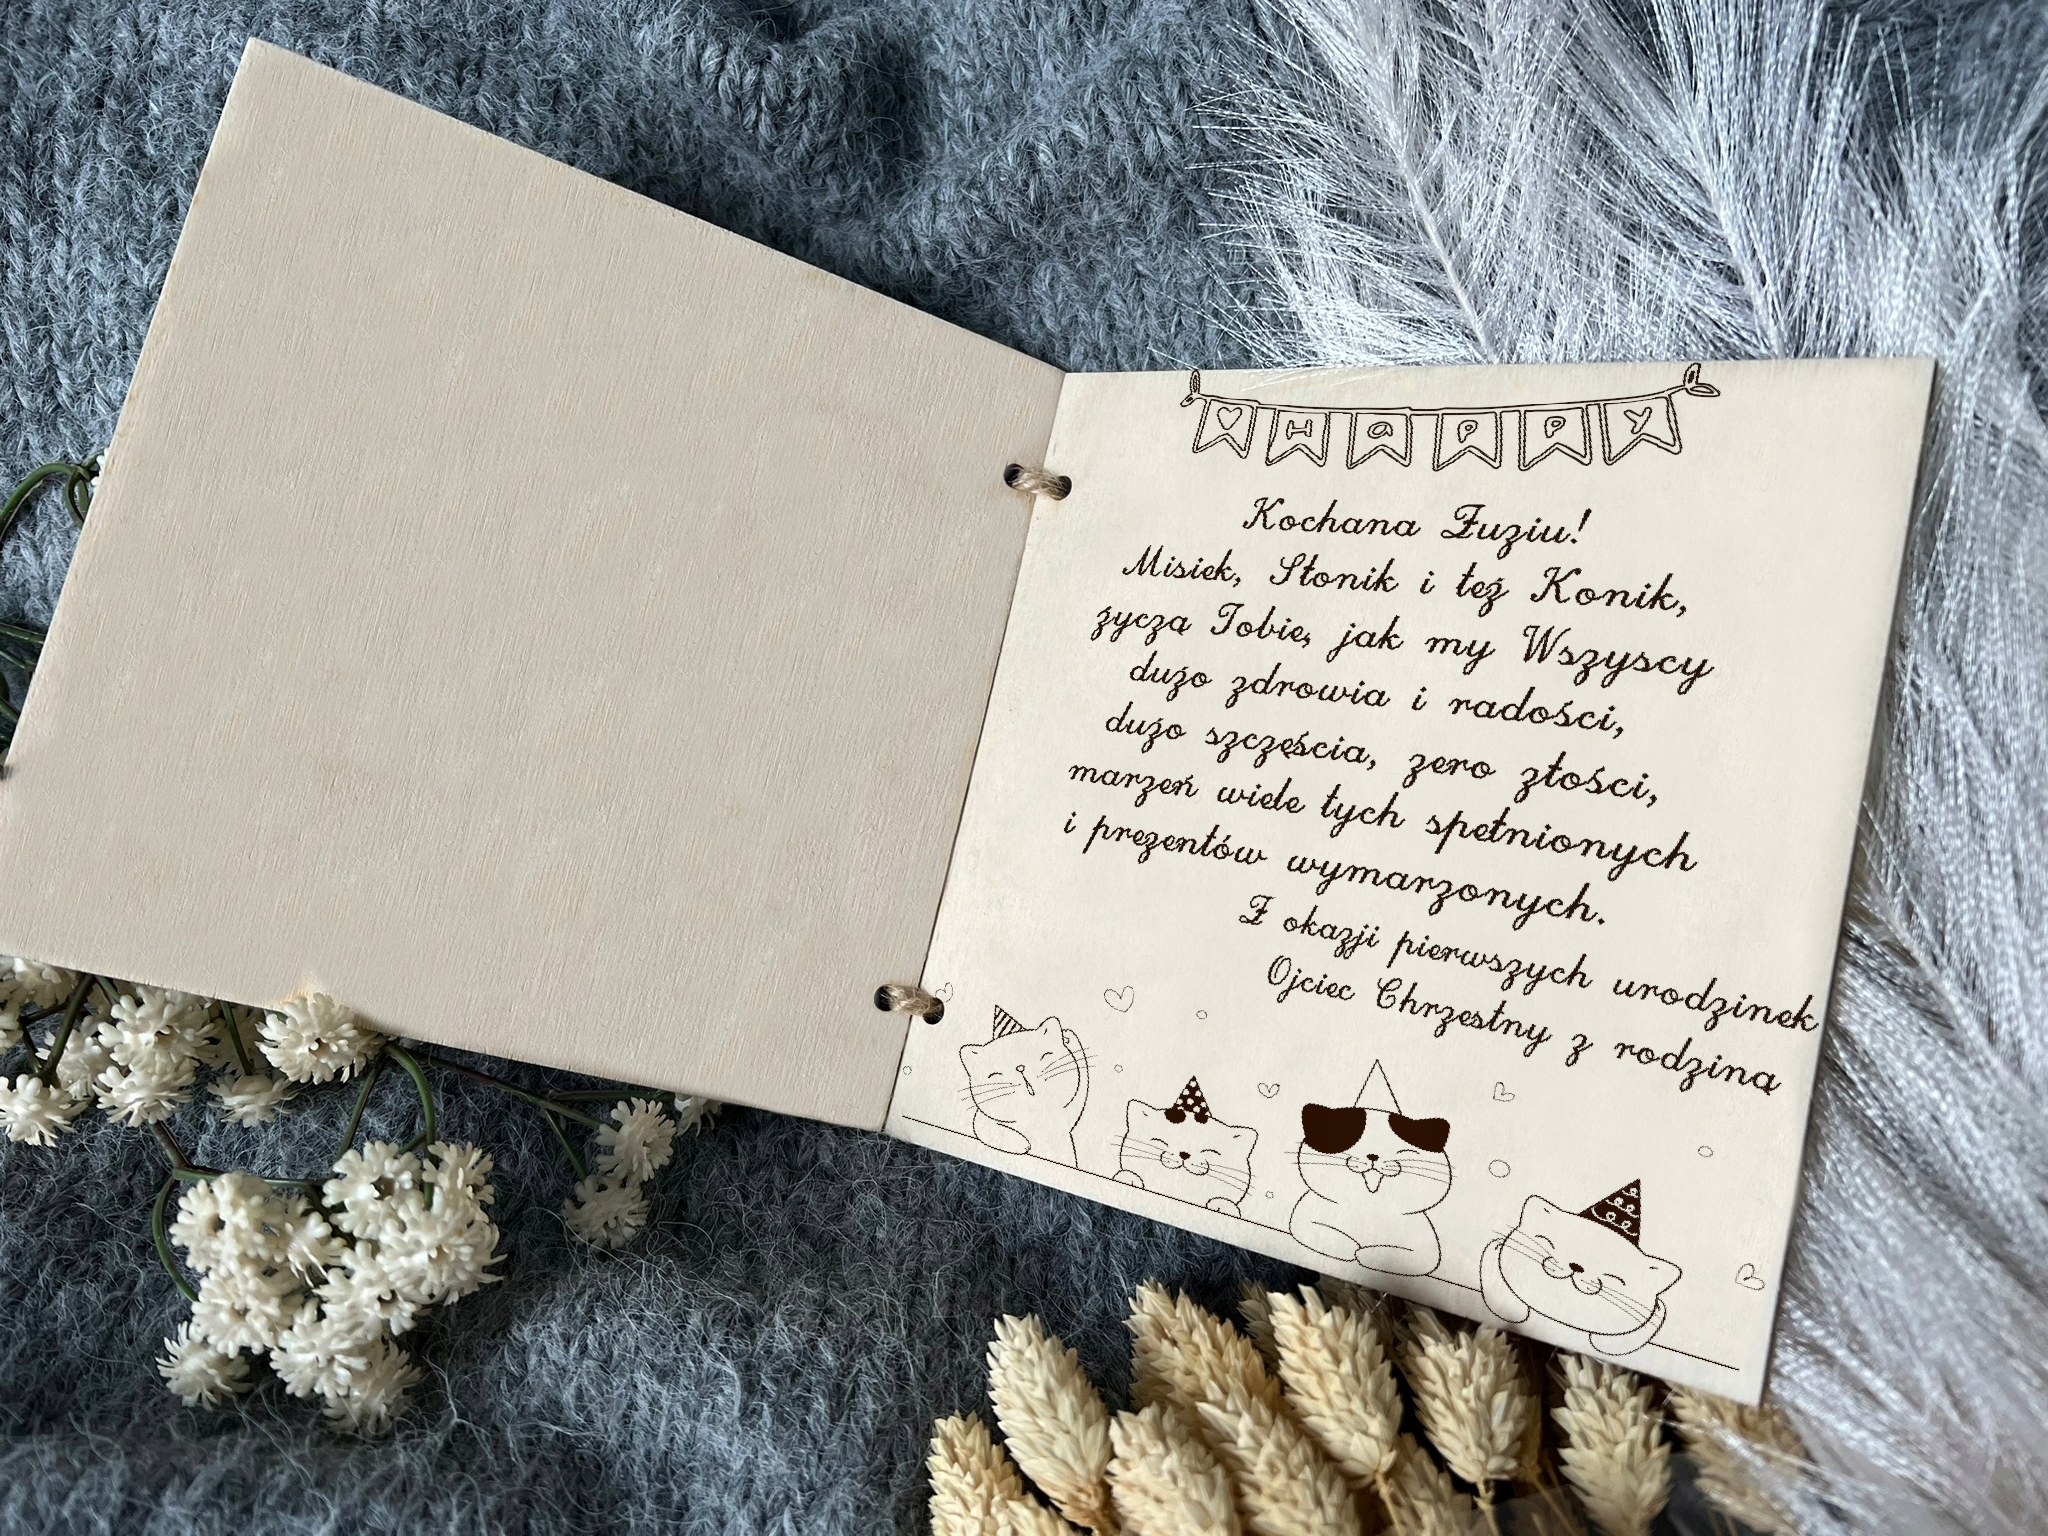 Happy
Kochana Zuziu!
Misiek, Słonik i też Konik,
życzą Tobie, jak my Wszyscy
dużo zdrowia i radości,
dużo szczęścia, zero złości,
marzeń wiele tych spełnionych
i prezentów wymarzonych.
Z okazji pierwszych urodzinek
Ojciec Chrzestny z rodziną